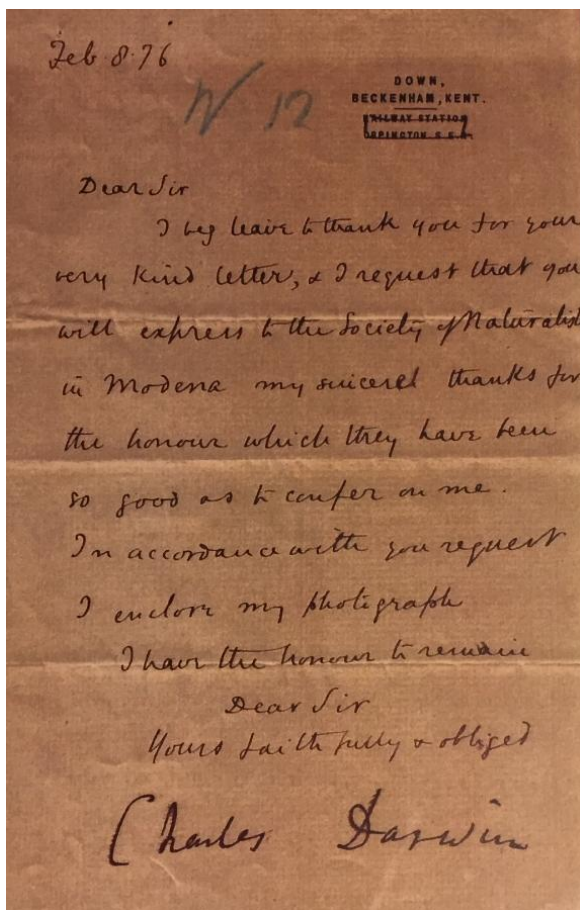 Feb 8. 76
N 12
DOWN,
BECKENHAM, KENT.
RAILWAY STATION
ORPINGTON. S.E.R.
Dear Sir
I beg leave to thank you for your
very kind letter, & I request that you
will express to the Society of Naturalists
in Modena my sincerest thanks for
the honour which they have been
so good as to confer on me.
In accordance with you request
I enclose my photograph
I have the honour to remain
Dear Sir
Yours faithfully & obliged
Charles Darwin